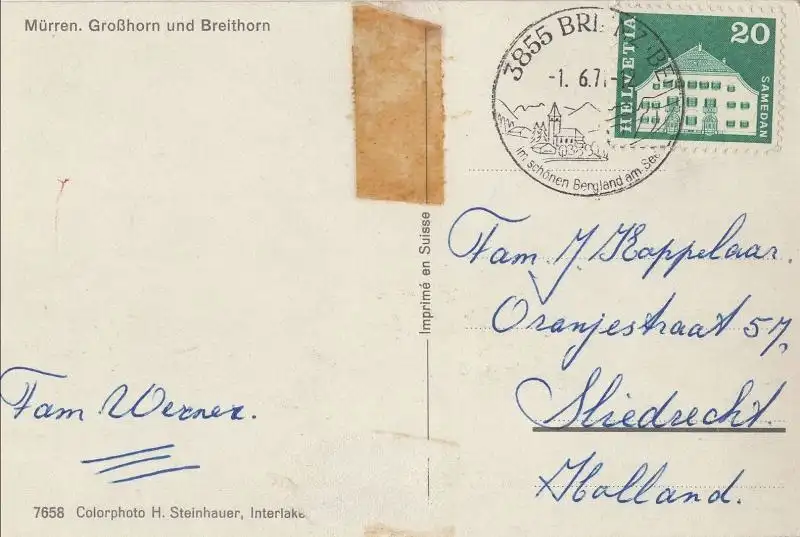 Mürren. Großhorn und Breithorn
HELVETIA
20
SAMEDAN
3855
-1. 6.71-
im schönen Bergland am See
Imprimé en Suisse
Fam J. Koppelaar.
Oranjestraat 57,
Sliedrecht.
Holland.
Fam Werner.
7658 Colorphoto H. Steinhauer, Interlake